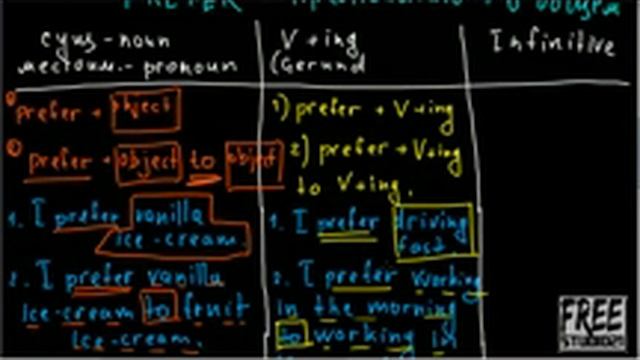 PREFER -
сущ - noun
местоим. - pronoun
V+ing
(Gerund
Infinitive
1) prefer + object
2) prefer + object to object
1. I prefer vanilla
ice-cream.
2. I prefer vanilla
ice-cream to fruit
ice-cream.
1) prefer + V+ing
2) prefer + V+ing
to V+ing.
1. I prefer driving
fast.
2. I prefer working
in the morning
to working in
FREE
STUDIO21